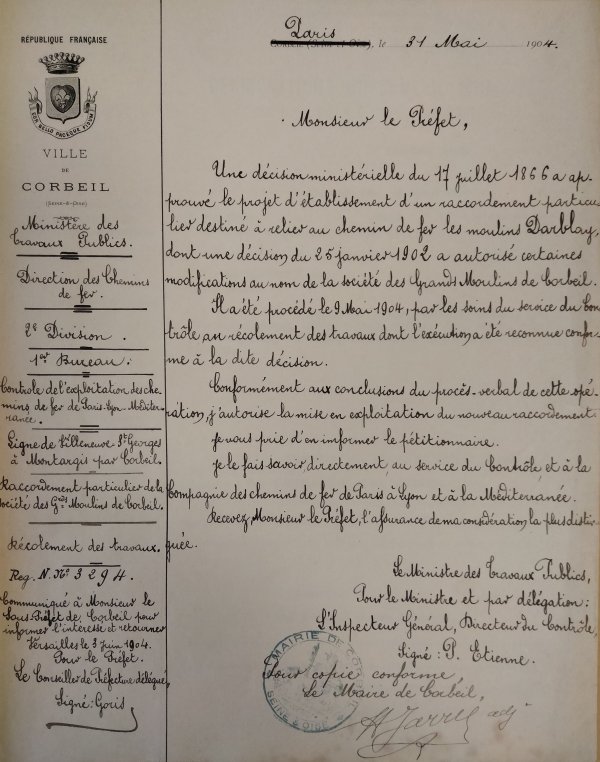 RÉPUBLIQUE FRANÇAISE
COR BELLO PACEQUE FIDUM
VILLE
DE
CORBEIL
(SEINE-&-OISE)
Ministère des
Travaux Publics.
Direction des Chemins
de fer.
2e Division.
1er Bureau:
Contrôle de l'exploitation des che-
mins de fer de Paris-Lyon-Méditer-
ranée.
Ligne de Villeneuve-St Georges
à Montargis par Corbeil.
Raccordement particulier de la
Société des Gds Moulins de Corbeil.
Récolement des travaux.
Reg. N. No 3294.
Communiqué à Monsieur le
Sous Préfet de Corbeil pour
informer l'intéressé et retourner
Versailles le 3 juin 1904.
Pour le Préfet.
Le Conseiller de Préfecture délégué,
Signé: Goris
Paris
Corbeil (Seine-et-Oise), le 31 Mai 1904.
Monsieur le Préfet,
Une décision ministérielle du 17 juillet 1866 a ap-
prouvé le projet d'établissement d'un raccordement particu-
lier destiné à relier au chemin de fer les moulins Darblay,
dont une décision du 25 janvier 1902 a autorisé certaines
modifications au nom de la société des Grands Moulins de Corbeil.
Il a été procédé le 9 Mai 1904, par les soins du service du Con-
trôle au récolement des travaux dont l'exécution a été reconnue confor-
me à la dite décision.
Conformément aux conclusions du procès-verbal de cette opé-
ration, j'autorise la mise en exploitation du nouveau raccordement.
Je vous prie d'en informer le pétitionnaire.
Je le fais savoir, directement, au service du Contrôle et à la
Compagnie des chemins de fer de Paris à Lyon et à la Méditerranée.
Recevez, Monsieur le Préfet, l'assurance de ma considération la plus distin-
guée.
Le Ministre des Travaux Publics,
Pour le Ministre et par délégation:
L'Inspecteur Général, Directeur du Contrôle,
Signé: P. Etienne.
Pour copie conforme,
Le Maire de Corbeil,
adj
MAIRIE DE
SEINE & OISE